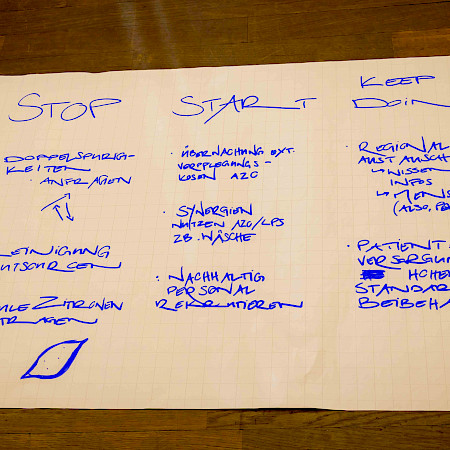 STOP
DOPPELSPURIG-
KEITEN
· ANFRAGEN
EINIGUNG
UTSOURCEN
ULE ZITRONEN
TRAGEN
START
· ÜBERNACHTUNG EXT.
VERPFLEGUNGS-
KOSEN AZC
· SYNERGIEN
NUTZEN AZC/LPS
ZB. WÄSCHE
· NACHHALTIG
PERSONAL
REKRUTIEREN
KEEP
DOIN
· REGIONAL
AUSTAUSCH
↳ WISSEN
INFOS
↳ MENS
(ALSO, PE
· PATIENT
VERSORGUN
HOHE
STANDAR
BEIBEHA